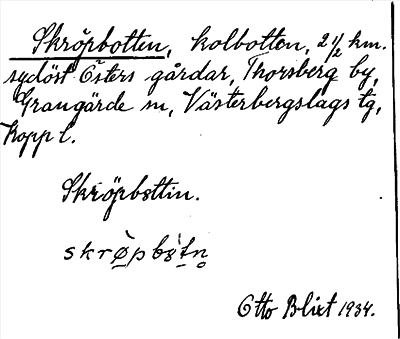 Skröpbotten, kolbotten, 2 1/2 km.
sydöst Östers gårdar, Thorsberg by,
Grangärde sn, Västerbergslags tg,
Kopp l.
Skröpbøttin.
skrø̀pbøtn̥
Otto Blixt 1934.